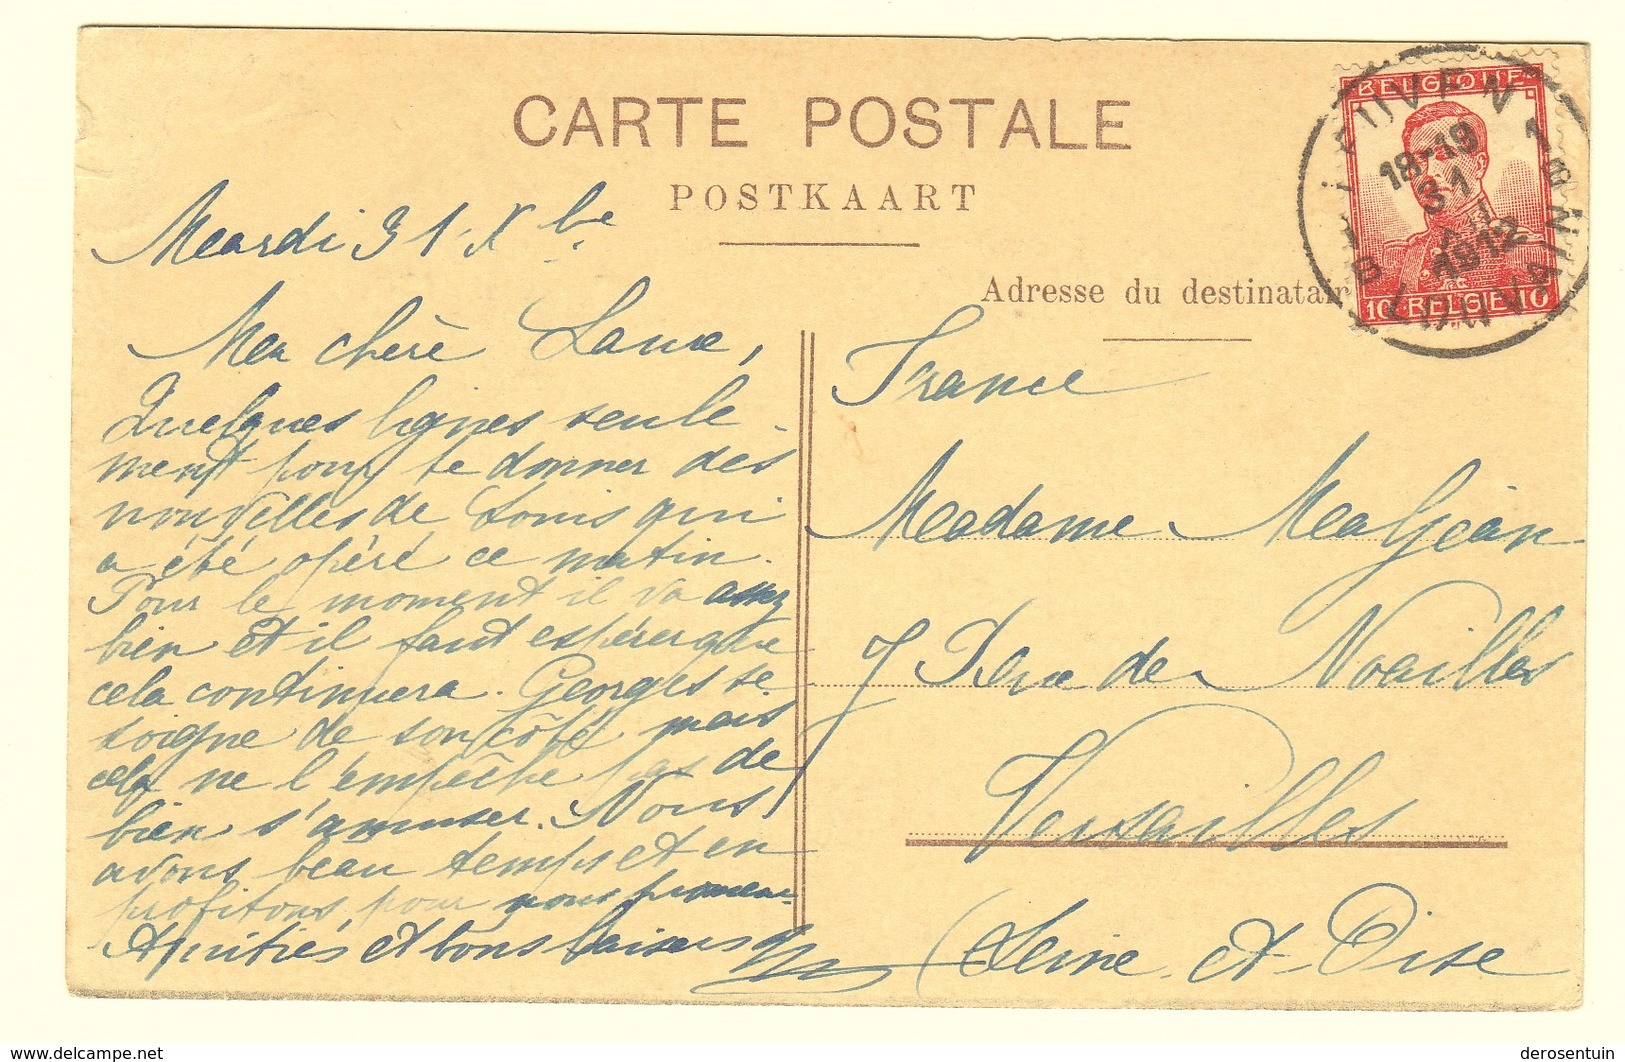 CARTE POSTALE
POSTKAART
Mardi 31 Xbe
Adresse du destinatair
BELGIQUE
10 BELGIE 10
LEUVEN 1
18-19
31
1912
LOUVAIN
B
Ma chère
Quelques lignes seule-
ment pour te donner des
nouvelles de Louis qui
a été opéré ce matin.
Pour le moment il va assez
bien et il faut espérer que
cela continuera. Georges se
soigne de son côté mais
cela ne l'empêche pas de
bien s'amuser. Nous
avons beau temps et en
profitons pour nous promener
Amitiés et bons baisers
France
Madame Maljean
7 Rue de Noailles
Versailles
(Seine et Oise
delcampe.net
derosentuin